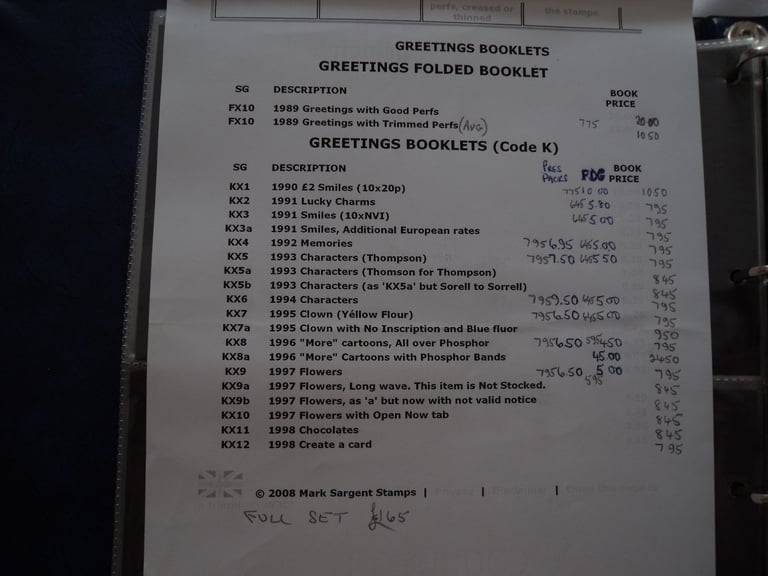 perfs, creased or
thinned
the stamps
GREETINGS BOOKLETS
GREETINGS FOLDED BOOKLET
SG DESCRIPTION BOOK PRICE
FX10 1989 Greetings with Good Perfs 20.00
FX10 1989 Greetings with Trimmed Perfs (AVG) 775 1050
GREETINGS BOOKLETS (Code K)
SG DESCRIPTION PRES PACKS FDC BOOK PRICE
KX1 1990 £2 Smiles (10x20p) 775 10 00 1050
KX2 1991 Lucky Charms 645 5.80 795
KX3 1991 Smiles (10xNVI) 645 5 00 795
KX3a 1991 Smiles, Additional European rates 795
KX4 1992 Memories 795 6.95 455.00 795
KX5 1993 Characters (Thompson) 795 7.50 455 50 795
KX5a 1993 Characters (Thomson for Thompson) 845
KX5b 1993 Characters (as 'KX5a' but Sorell to Sorrell) 845
KX6 1994 Characters 795 9.50 455 00 795
KX7 1995 Clown (Yéllow Flour) 795 6.50 455 00 795
KX7a 1995 Clown with No Inscription and Blue fluor 950
KX8 1996 "More" cartoons, All over Phosphor 795 6 50 595 4 50 795
KX8a 1996 "More" Cartoons with Phosphor Bands 45.00 2450
KX9 1997 Flowers 795 6.50 5 00 795
595
KX9a 1997 Flowers, Long wave. This item is Not Stocked. 845
KX9b 1997 Flowers, as 'a' but now with not valid notice 845
KX10 1997 Flowers with Open Now tab 845
KX11 1998 Chocolates 845
KX12 1998 Create a card 795
© 2008 Mark Sargent Stamps | Privacy | Disclaimer |
a friend
FULL SET £165